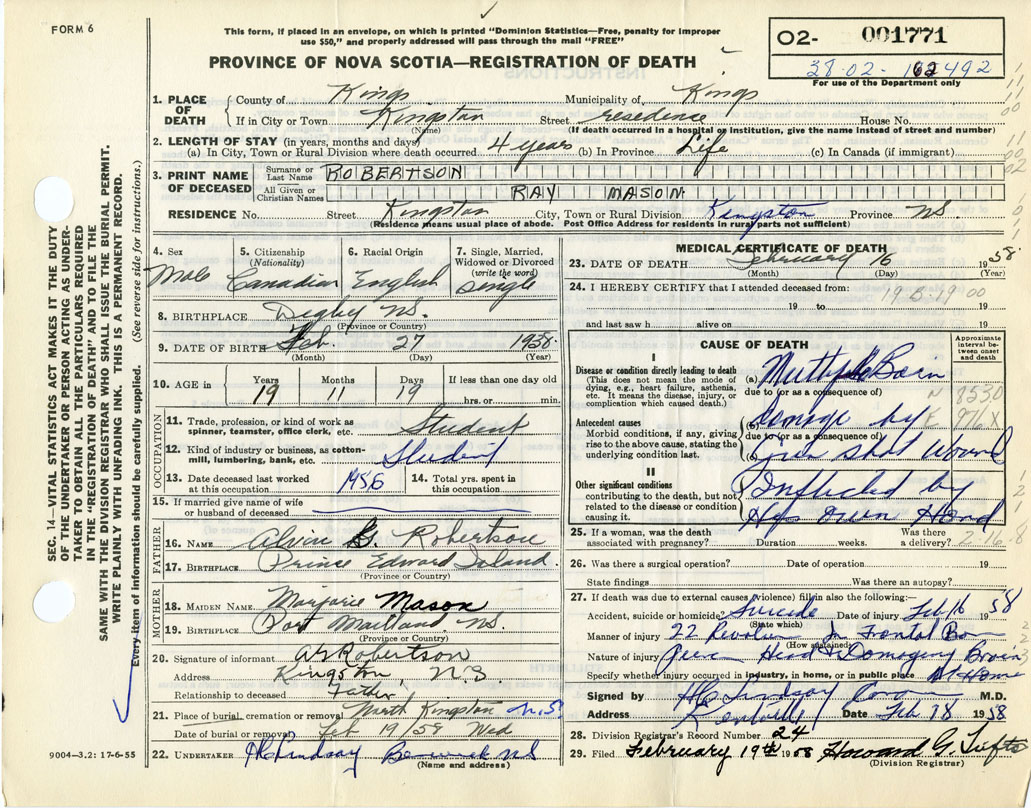 FORM 6
This form, if placed in an envelope, on which is printed "Dominion Statistics—Free, penalty for improper
use $50," and properly addressed will pass through the mail "FREE"
O2- 001771
PROVINCE OF NOVA SCOTIA—REGISTRATION OF DEATH
For use of the Department only
1. PLACE OF DEATH County of Kings Municipality of Kings
If in City or Town Kingston Street resedence House No.
(Name) (If death occurred in a hospital or institution, give the name instead of street and number)
2. LENGTH OF STAY (in years, months and days)
(a) In City, Town or Rural Division where death occurred 4 years (b) In Province Life (c) In Canada (if immigrant)
3. PRINT NAME OF DECEASED Surname or Last Name ROBERTSON
All Given or Christian Names RAY MASON
RESIDENCE No. Street Kingston City, Town or Rural Division Kingston Province NS
(Residence means usual place of abode. Post Office Address for residents in rural parts not sufficient)
4. Sex Male
5. Citizenship (Nationality) Canadian
6. Racial Origin English
7. Single, Married, Widowed or Divorced (write the word) Single
8. BIRTHPLACE Digby NS.
(Province or Country)
9. DATE OF BIRTH Feb. 27 1938
(Month) (Day) (Year)
10. AGE in Years 19 Months 11 Days 19 If less than one day old
hrs. or min.
OCCUPATION
11. Trade, profession, or kind of work as
spinner, teamster, office clerk, etc. Student
12. Kind of industry or business, as cotton-
mill, lumbering, bank, etc. Student
13. Date deceased last worked
at this occupation 1956
14. Total yrs. spent in
this occupation
15. If married give name of wife
or husband of deceased
FATHER
16. NAME Alvin G. Robertson
17. BIRTHPLACE Prince Edward Island
(Province or Country)
MOTHER
18. MAIDEN NAME Marjorie Mason
19. BIRTHPLACE Port Maitland NS
(Province or Country)
20. Signature of informant AG Robertson
Address Kingston, N.S.
Relationship to deceased Father
21. Place of burial, cremation or removal North Kingston N.S
Date of burial or removal Feb 19/58 Wed
22. UNDERTAKER H C Lindsay Berwick NS
(Name and address)
MEDICAL CERTIFICATE OF DEATH
23. DATE OF DEATH February 16 1958
(Month) (Day) (Year)
24. I HEREBY CERTIFY that I attended deceased from:
19 to 19
and last saw h alive on 19
CAUSE OF DEATH
Approximate interval between onset and death
I
Disease or condition directly leading to death
(This does not mean the mode of
dying, e.g., heart failure, asthenia,
etc. It means the disease, injury, or
complication which caused death.)
(a) Multiple Brain
due to (or as a consequence of)
Antecedent causes
Morbid conditions, if any, giving
rise to the above cause, stating the
underlying condition last.
(b) Damage by
due to (or as a consequence of)
(c) gun shot Wound
II
Other significant conditions
contributing to the death, but not
related to the disease or condition
causing it.
Inflicted by
His Own Hand
N 8530
E 976X
25. If a woman, was the death
associated with pregnancy? Duration weeks. Was there
a delivery?
26. Was there a surgical operation? Date of operation 19
State findings Was there an autopsy?
27. If death was due to external causes (violence) fill in also the following:—
Accident, suicide or homicide? Suicide Date of injury Feb 16 1958
(State which)
Manner of injury 22 Revolver In Frontal
(How sustained)
Nature of injury Head & Damageing Brain
Specify whether injury occurred in industry, in home, or in public place At Home
Signed by H C Lindsay Coroner M.D.
Address Kentville Date Feb 18 1958
28. Division Registrar's Record Number 24
29. Filed February 19th 1958 Howard G. Tufts
(Division Registrar)
SEC. 14—VITAL STATISTICS ACT MAKES IT THE DUTY
OF THE UNDERTAKER OR PERSON ACTING AS UNDER-
TAKER TO OBTAIN ALL THE PARTICULARS REQUIRED
IN THE "REGISTRATION OF DEATH" AND TO FILE THE
SAME WITH THE DIVISION REGISTRAR WHO SHALL ISSUE THE BURIAL PERMIT.
WRITE PLAINLY WITH UNFADING INK. THIS IS A PERMANENT RECORD.
Every item of information should be carefully supplied. (See reverse side for instructions.)
9004—3.2: 17-6-55